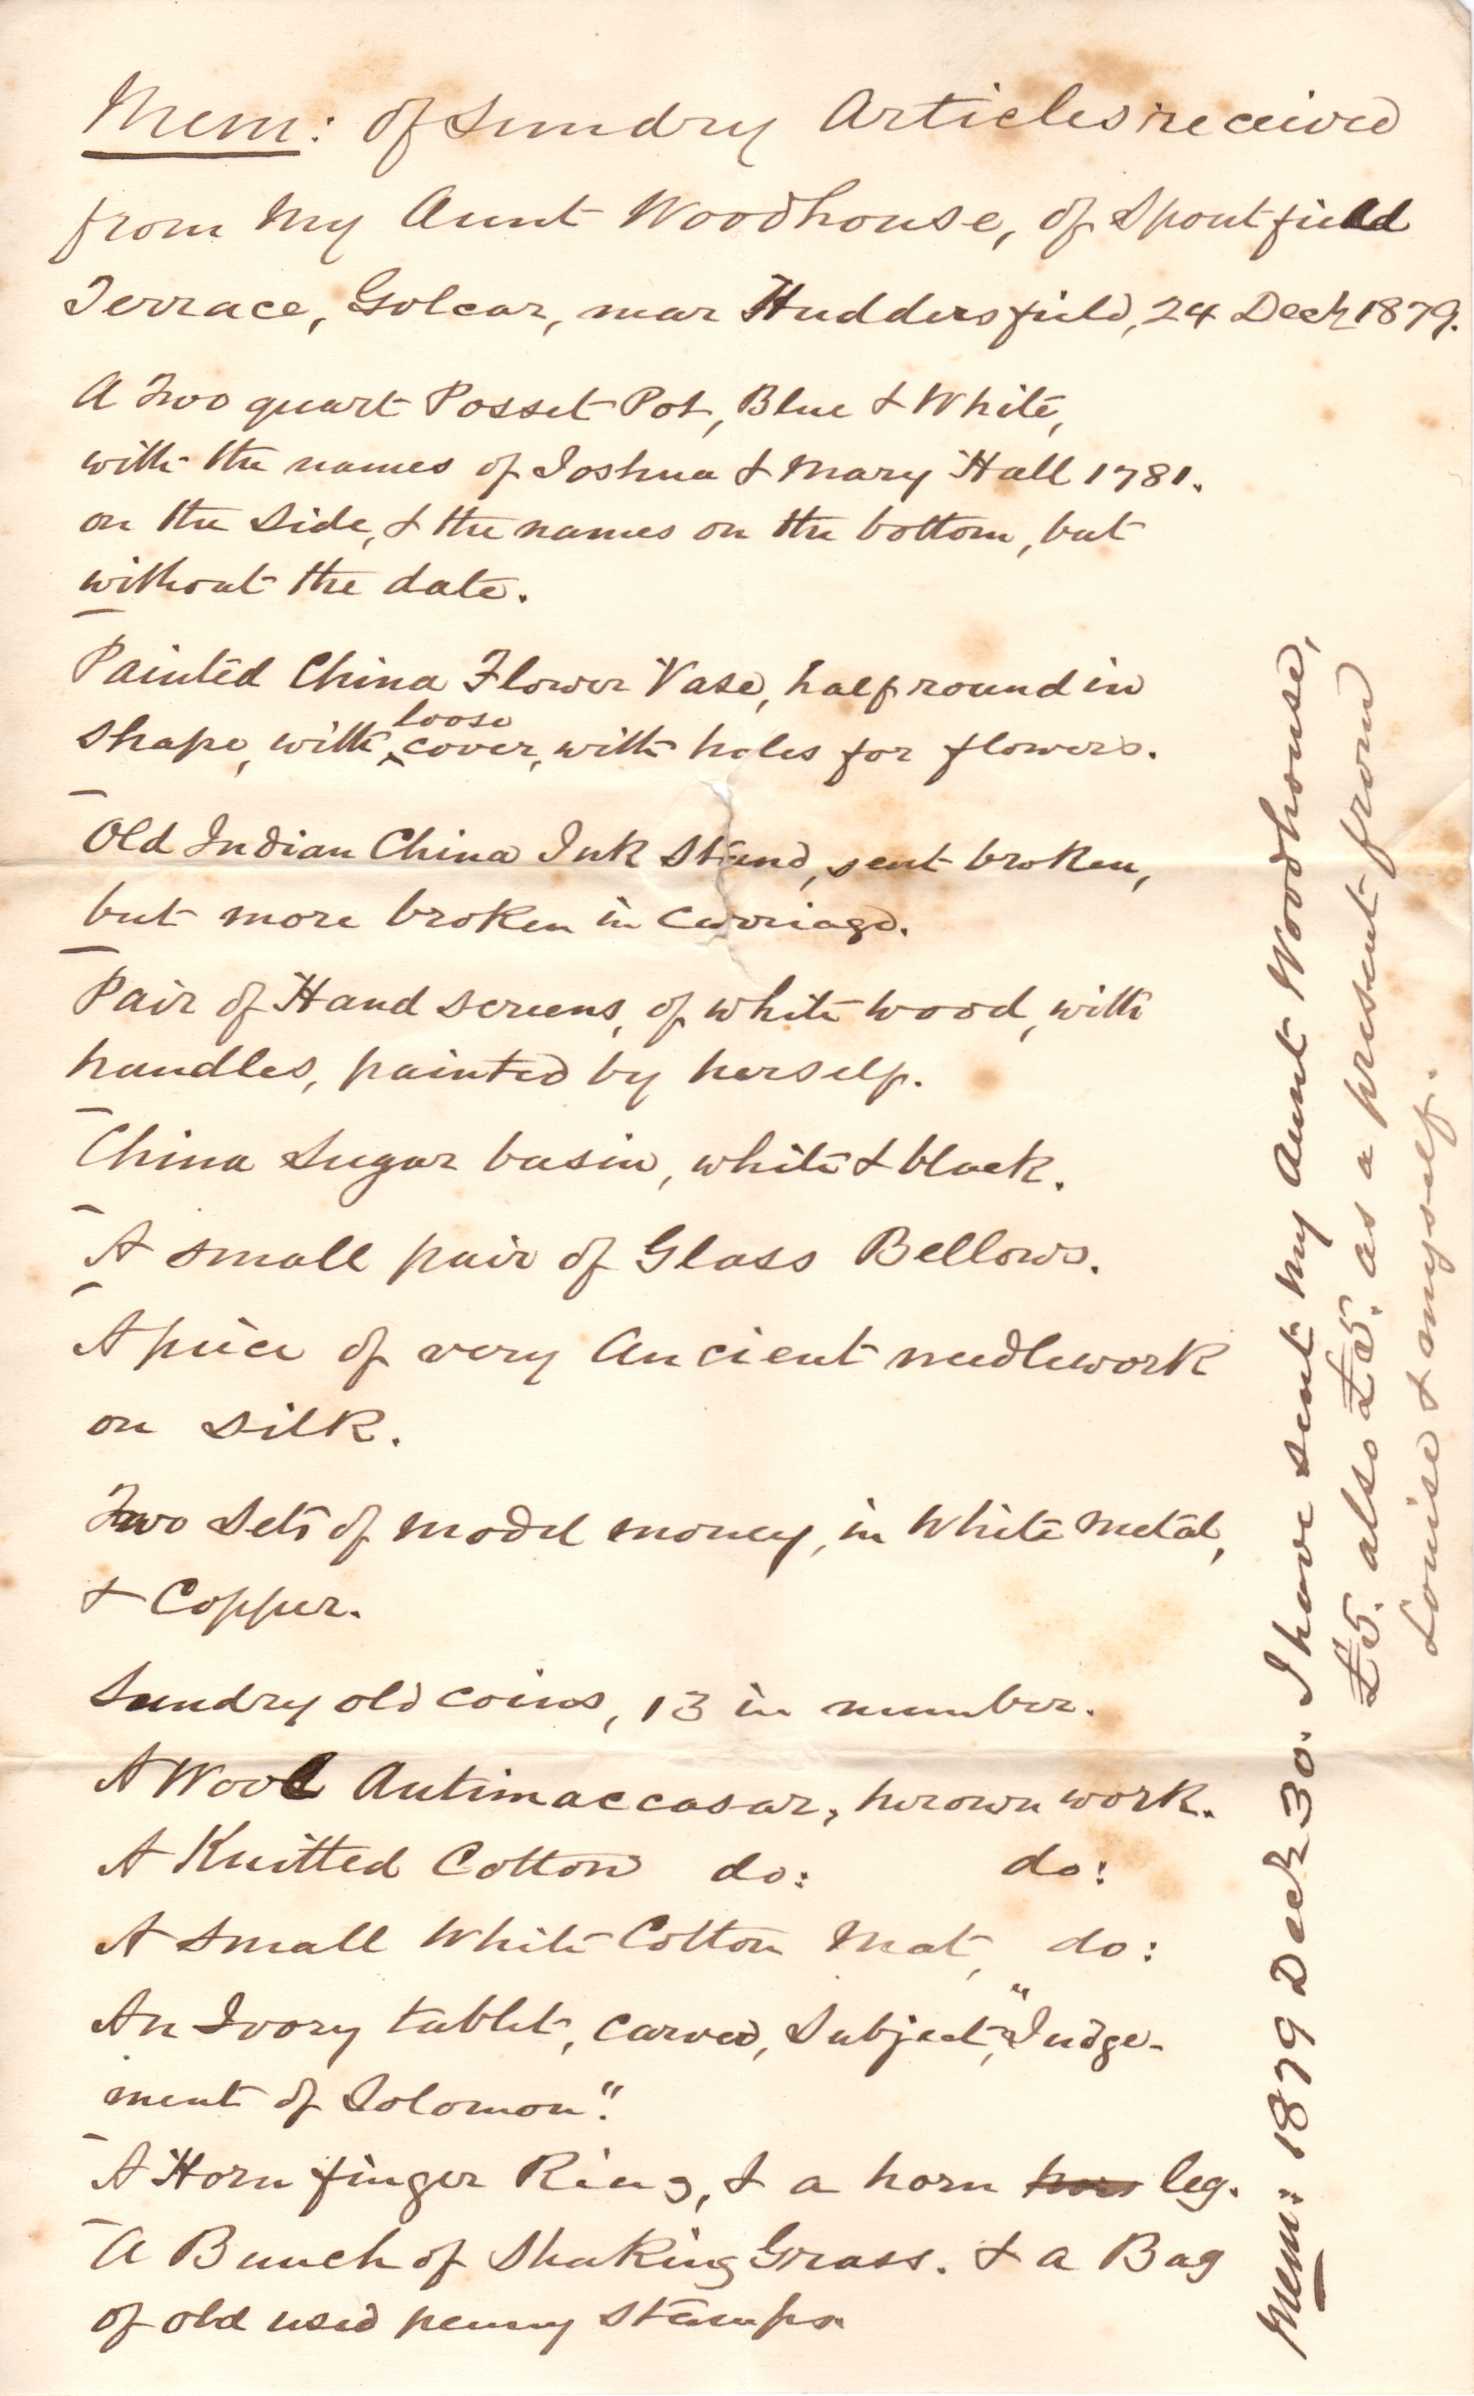 Mem: of Sundry Articles received
from my Aunt Woodhouse, of Spoutfield
Terrace, Golcar, near Huddersfield, 24 Decr 1879.
A Two quart Posset Pot, Blue & White,
with the names of Joshua & Mary Hall 1781.
on the side, & the names on the bottom, but
without the date.
Painted China Flower Vase, half round in
loose
shape, with cover, with holes for flowers.
Old Indian China Ink Stand, sent broken,
but more broken in carriage.
Pair of Hand screens, of white wood, with
handles, painted by herself.
China Sugar basin, white & black.
A small pair of Glass Bellows.
A piece of very ancient needlework
on silk.
Two Sets of model money, in White metal,
& Copper.
Sundry old coins, 13 in number.
A Wool Antimaccasar, her own work.
A Knitted Cotton do: do:
A small White Cotton Mat, do:
An Ivory tablet, carved, Subject, "Judge-
ment of Solomon".
A Horn finger Ring, & a horn leg.
A Bunch of Shaking Grass. & a Bag
of old used penny stamps.
Mem: 1879 Decr 30. I have sent my Aunt Woodhouse,
£5. also £5. as a present from
Louise & myself.